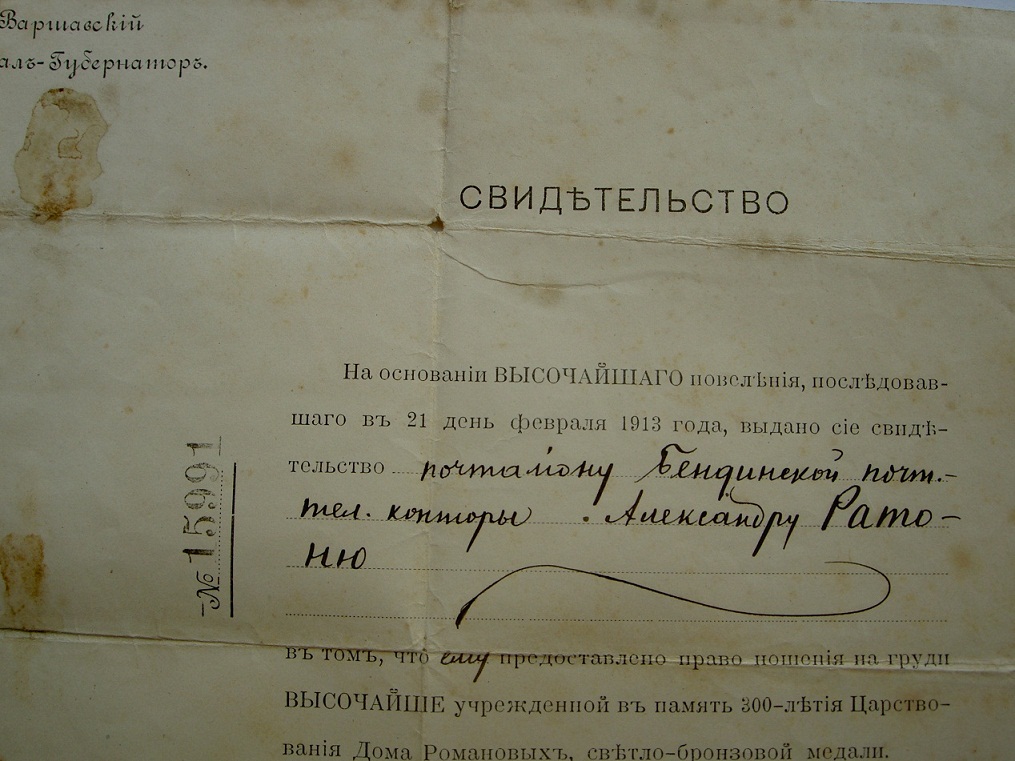 Варшавскій
алъ-Губернаторъ.
СВИДѢТЕЛЬСТВО
На основаніи ВЫСОЧАЙШАГО повелѣнія, послѣдовав-
шаго въ 21 день февраля 1913 года, выдано сіе свидѣ-
тельство почталіону Бендинской почт.-
тел. конторы Александру Рато-
ню
№ 15991
въ томъ, что ему предоставлено право ношенія на груди
ВЫСОЧАЙШЕ учрежденной въ память 300-лѣтія Царство-
ванія Дома Романовыхъ, свѣтло-бронзовой медали.